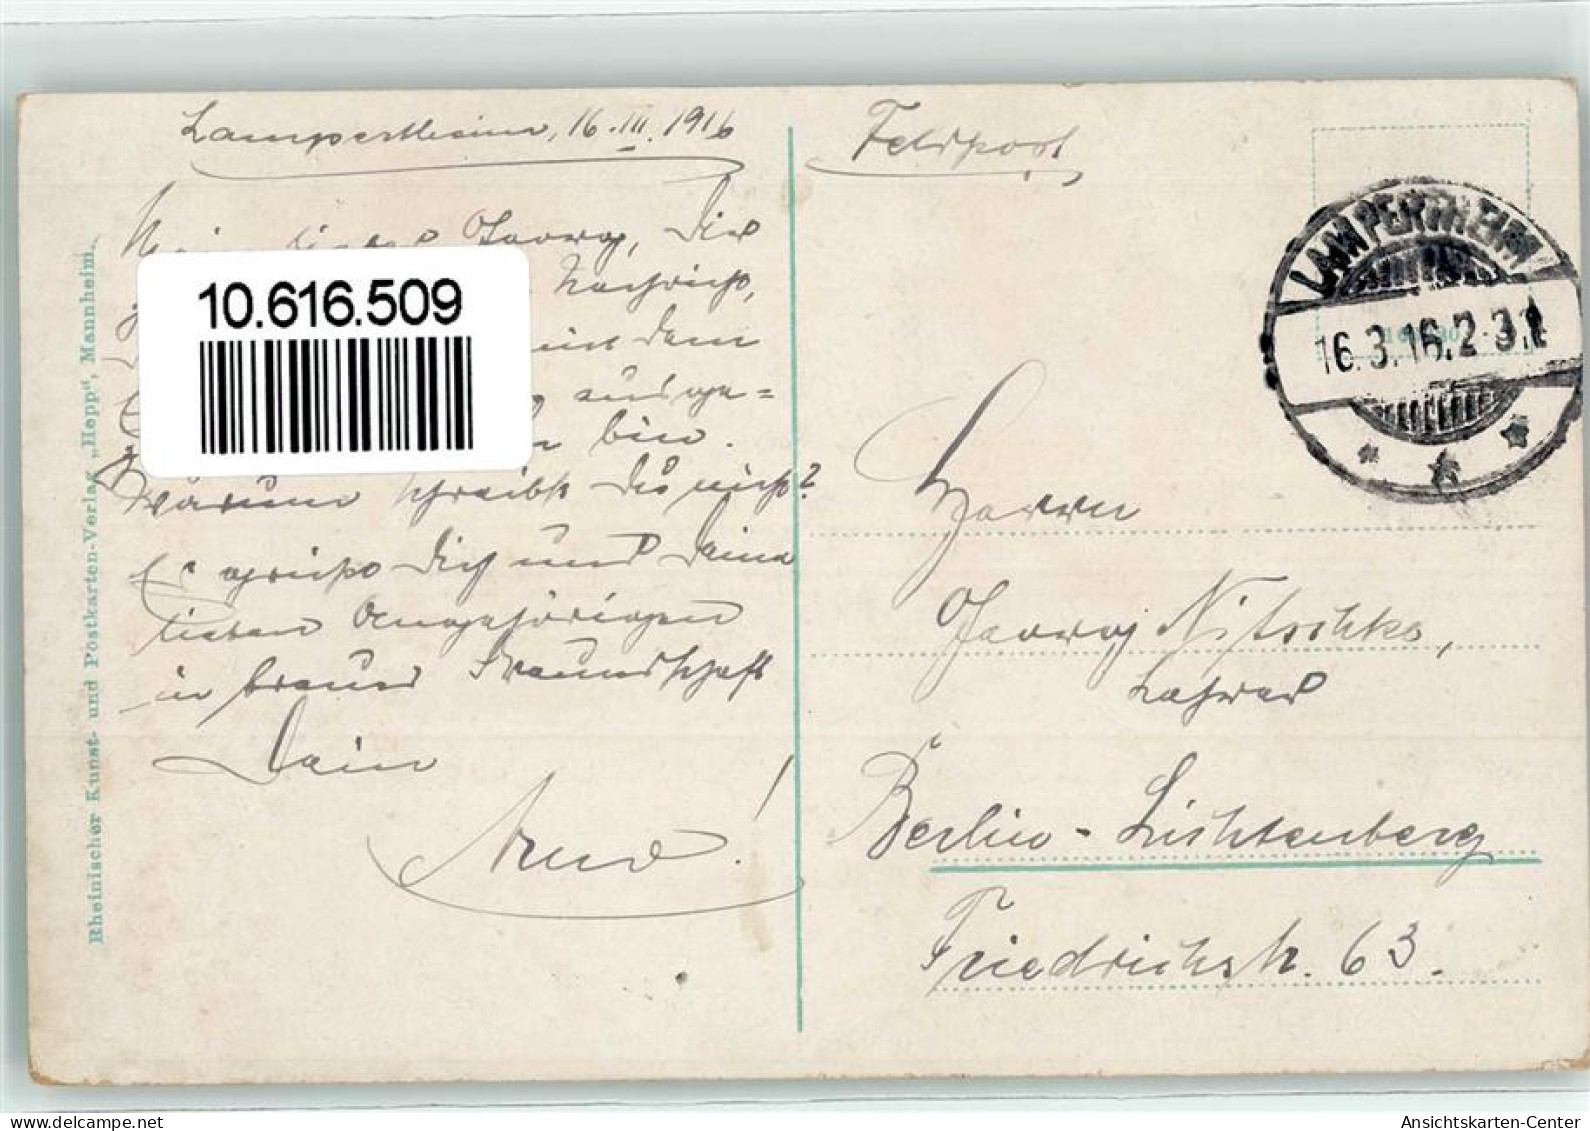 Lampertheim, 16.III.1916
Mein lieber Georg, Die
Nachricht,
mit dem
ausge=
bin.
Warum schreibst Du nicht?
Es grüßt Dich und Deine
lieben Angehörigen
in treuer Freundschaft
Dein
10.616.509
Rheinischer Kunst- und Postkarten-Verlag „Hepp", Mannheim.
Feldpost
LAMPERTHEIM
16.3.16.2-3N
Herrn
Georg Nitschke,
Lehrer
Berlin-Lichtenberg
Friedrichstr. 63.
Ansichtskarten-Center
www.delcampe.net